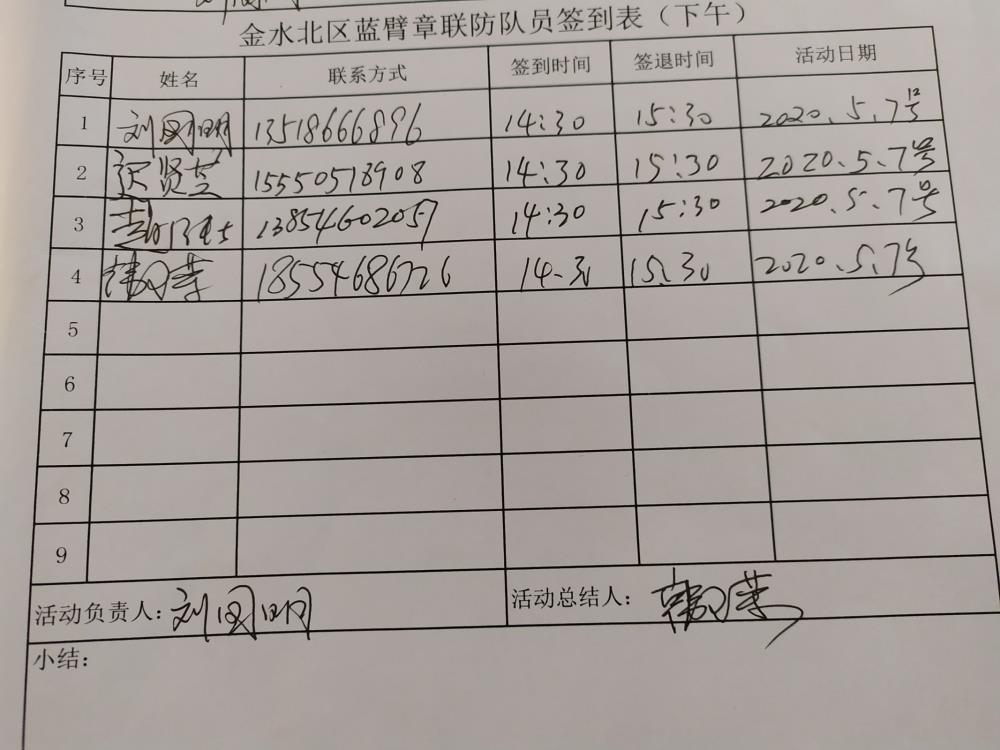 金水北区蓝臂章联防队员签到表（下午）
序号 姓名 联系方式 签到时间 签退时间 活动日期
1 刘国明 13518666896 14:30 15:30 2020.5.7号
2 15550518908 14:30 15:30 2020.5.7号
3 13854602057 14:30 15:30 2020.5.7号
4 18554686726 14-30 15:30 2020.5.7号
5
6
7
8
9
活动负责人：刘国明 活动总结人：
小结：